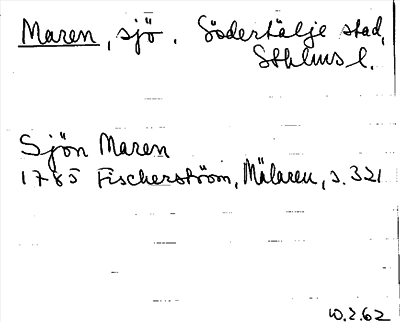 Maren, sjö. Södertälje stad,
Sthlms l.
Sjön Maren
1785 Fischerström, Mälaren, s. 321
10.2.62